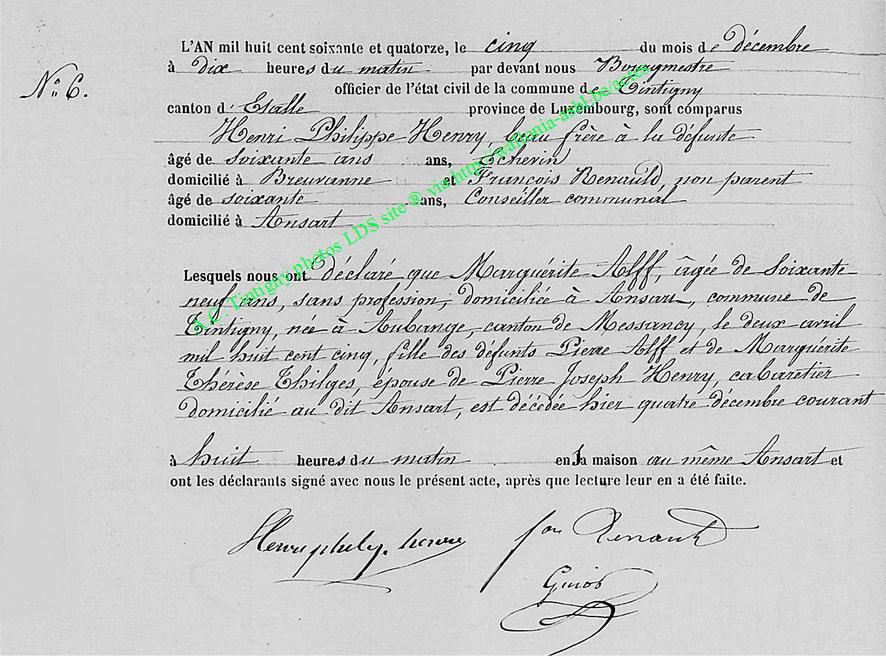 L'AN mil huit cent soixante et quatorze, le cinq du mois de décembre
à dix heures du matin par devant nous Bourgmestre
N° 6. officier de l'état civil de la commune de Tintigny
canton d' Etalle province de Luxembourg, sont comparus
Henri Philippe Henry, beau frère à la défunte
âgé de soixante ans ans, Echevin
domicilié à Breuvanne et François Renauld, non parent
âgé de soixante ans, Conseiller communal
domicilié à Ansart
A.C. Tintigny photos LDS site ® via http://
Lesquels nous ont déclaré que Marguérite Alff, âgée de soixante
neuf ans, sans profession, domiciliée à Ansart, commune de
Tintigny, née à Aubange, canton de Messancy, le deux avril
mil huit cent cinq, fille des défunts Pierre Alff et de Marguérite
Thérèse Thilges, épouse de Pierre Joseph Henry, cabaretier
domicilié au dit Ansart, est décédée hier quatre décembre courant
à huit heures du matin en la maison au même Ansart et
ont les déclarants signé avec nous le présent acte, après que lecture leur en a été faite.
Renauld